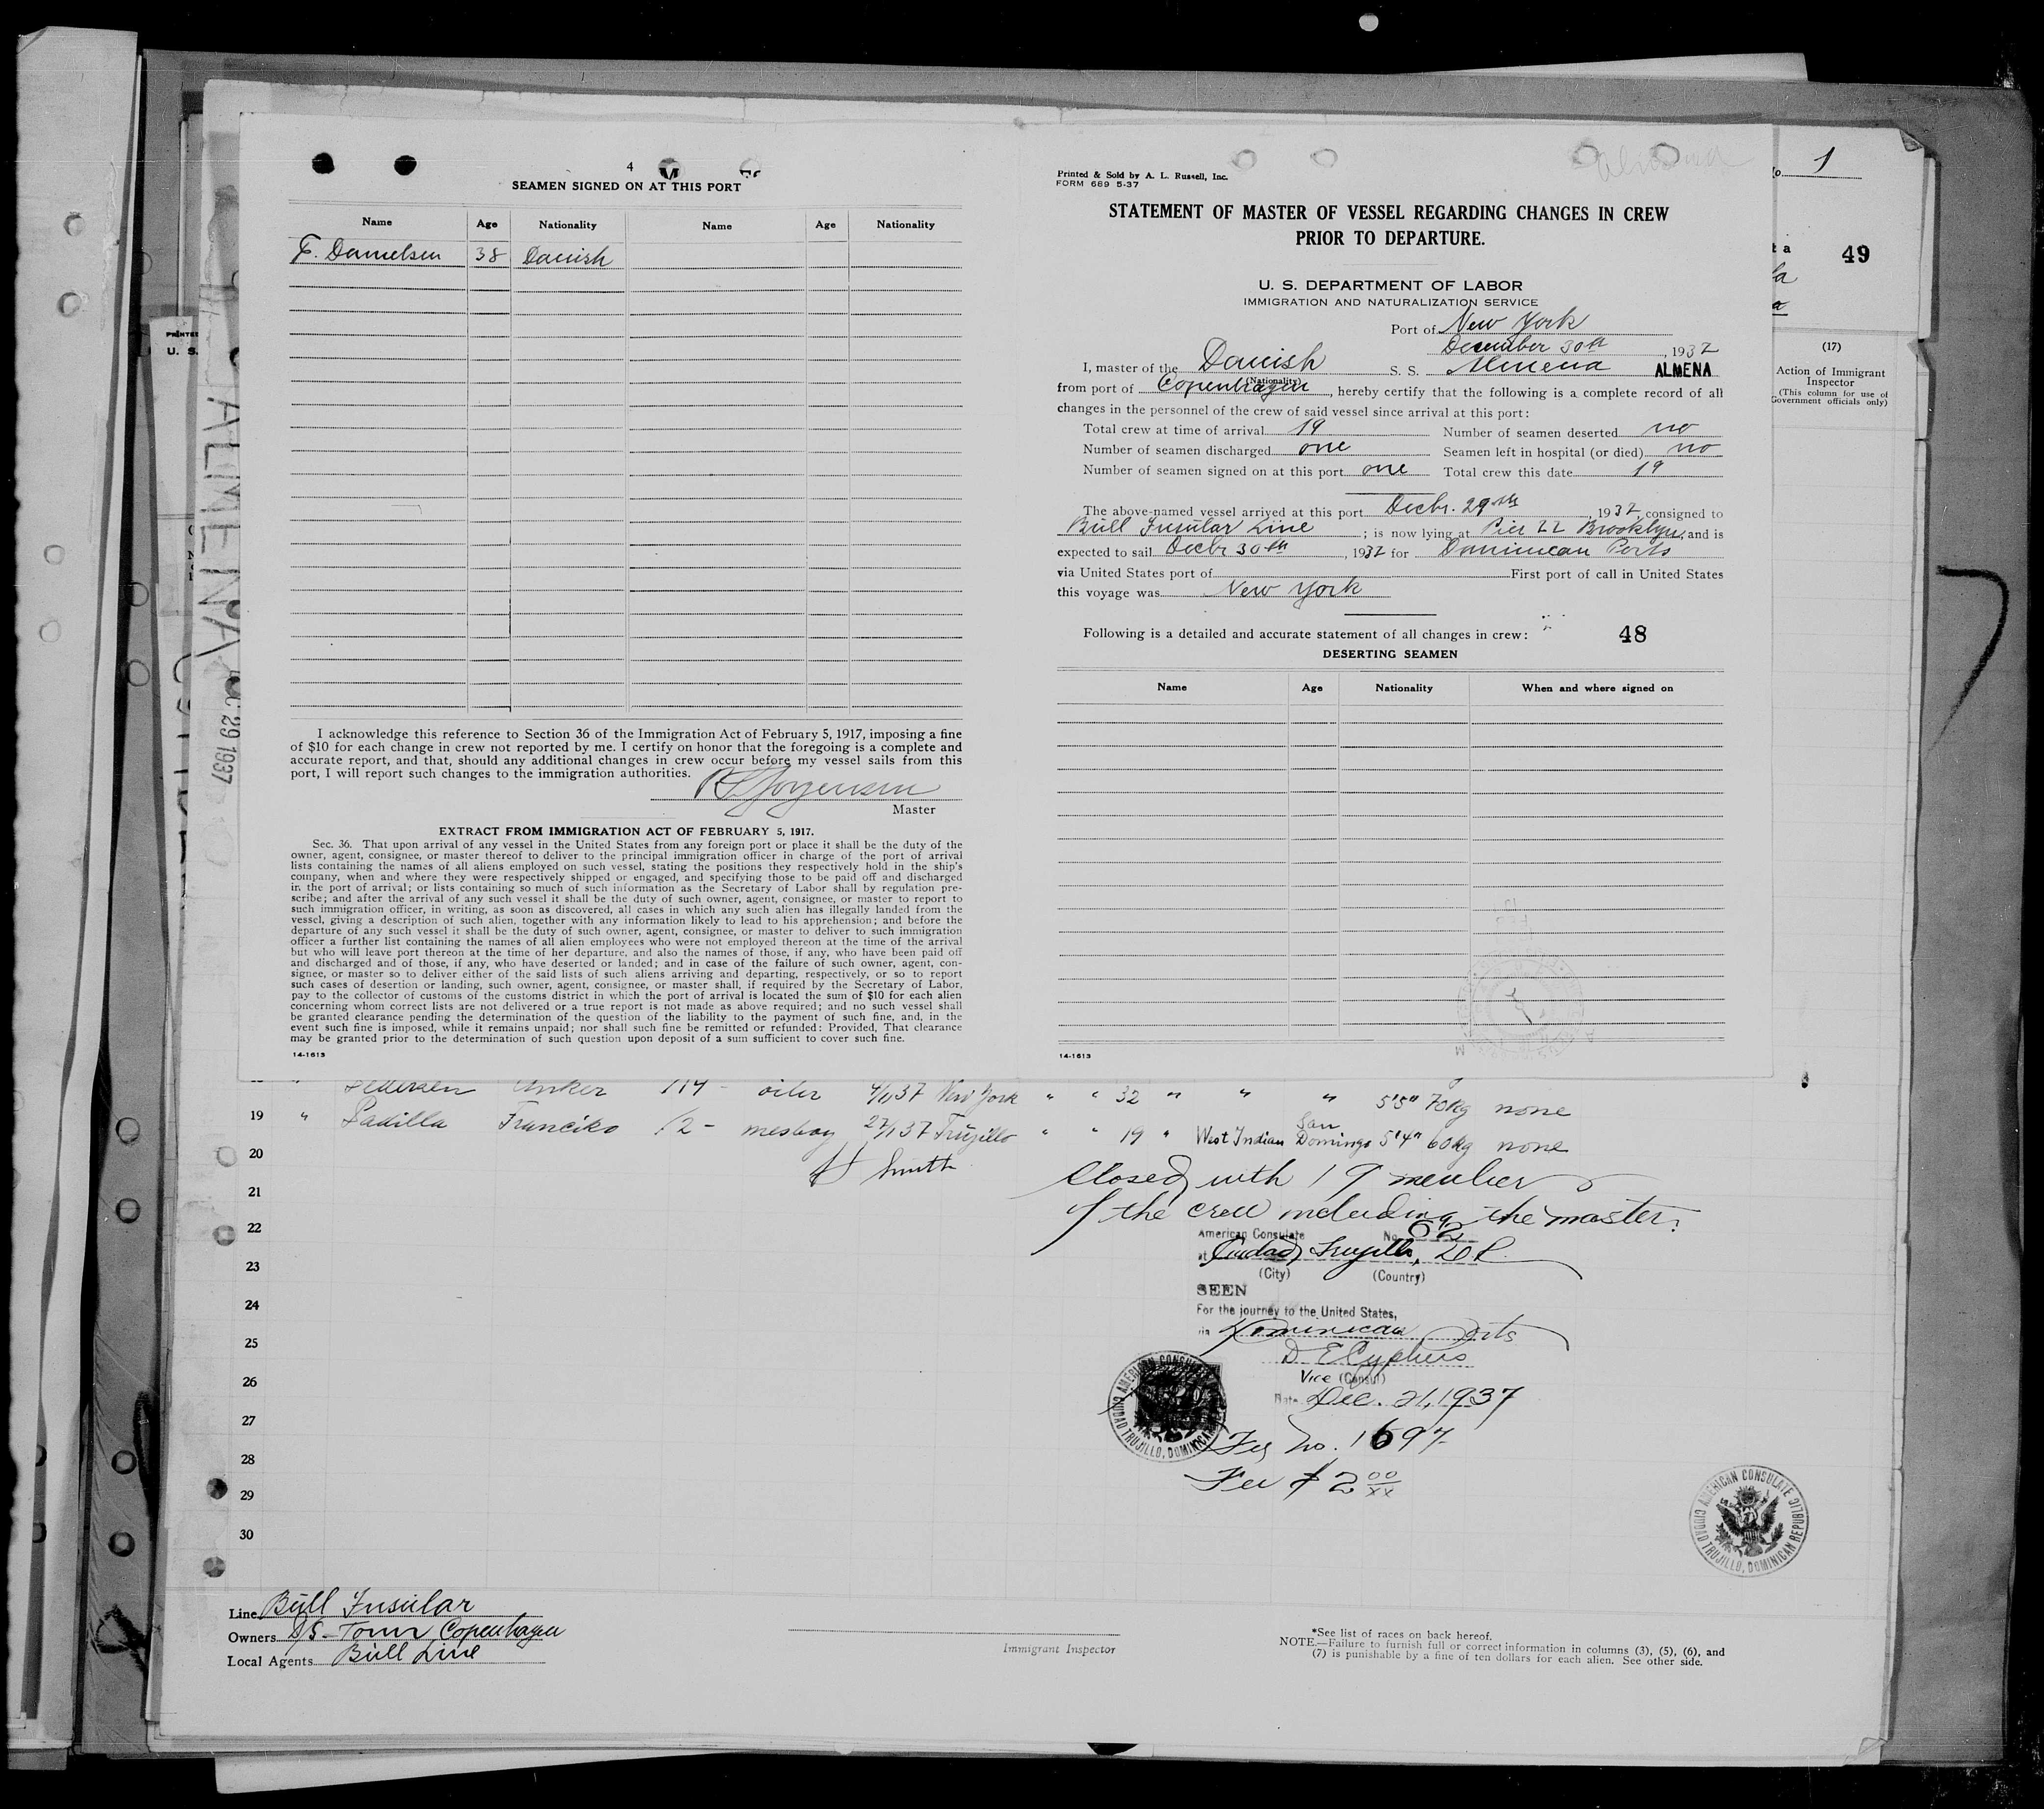 4
SEAMEN SIGNED ON AT THIS PORT
Name Age Nationality Name Age Nationality
F. Danielsen 38 Danish
I acknowledge this reference to Section 36 of the Immigration Act of February 5, 1917, imposing a fine
of $10 for each change in crew not reported by me. I certify on honor that the foregoing is a complete and
accurate report, and that, should any additional changes in crew occur before my vessel sails from this
port, I will report such changes to the immigration authorities.
Jorgensen
Master
EXTRACT FROM IMMIGRATION ACT OF FEBRUARY 5, 1917.
Sec. 36. That upon arrival of any vessel in the United States from any foreign port or place it shall be the duty of the
owner, agent, consignee, or master thereof to deliver to the principal immigration officer in charge of the port of arrival
lists containing the names of all aliens employed on such vessel, stating the positions they respectively hold in the ship's
company, when and where they were respectively shipped or engaged, and specifying those to be paid off and discharged
in the port of arrival; or lists containing so much of such information as the Secretary of Labor shall by regulation pre-
scribe; and after the arrival of any such vessel it shall be the duty of such owner, agent, consignee, or master to report to
such immigration officer, in writing, as soon as discovered, all cases in which any such alien has illegally landed from the
vessel, giving a description of such alien, together with any information likely to lead to his apprehension; and before the
departure of any such vessel it shall be the duty of such owner, agent, consignee, or master to deliver to such immigration
officer a further list containing the names of all alien employees who were not employed thereon at the time of the arrival
but who will leave port thereon at the time of her departure, and also the names of those, if any, who have been paid off
and discharged and of those, if any, who have deserted or landed; and in case of the failure of such owner, agent, con-
signee, or master so to deliver either of the said lists of such aliens arriving and departing, respectively, or so to report
such cases of desertion or landing, such owner, agent, consignee, or master shall, if required by the Secretary of Labor,
pay to the collector of customs of the customs district in which the port of arrival is located the sum of $10 for each alien
concerning whom correct lists are not delivered or a true report is not made as above required; and no such vessel shall
be granted clearance pending the determination of the question of the liability to the payment of such fine, and, in the
event such fine is imposed, while it remains unpaid; nor shall such fine be remitted or refunded: Provided, That clearance
may be granted prior to the determination of such question upon deposit of a sum sufficient to cover such fine.
14-1613
Printed & Sold by A. L. Russell, Inc.
FORM 689 5-37
STATEMENT OF MASTER OF VESSEL REGARDING CHANGES IN CREW
PRIOR TO DEPARTURE.
U. S. DEPARTMENT OF LABOR
IMMIGRATION AND NATURALIZATION SERVICE
Port of New York
December 30th, 1937
I, master of the Danish S. S. Almena ALMENA
(Nationality)
from port of Copenhagen, hereby certify that the following is a complete record of all
changes in the personnel of the crew of said vessel since arrival at this port:
Total crew at time of arrival 19 Number of seamen deserted no
Number of seamen discharged one Seamen left in hospital (or died) no
Number of seamen signed on at this port one Total crew this date 19
The above-named vessel arrived at this port Decbr. 29th, 1937, consigned to
Bull Insular Line; is now lying at Pier 22 Brooklyn, and is
expected to sail Decbr 30th, 1937 for Dominican Ports
via United States port of First port of call in United States
this voyage was New York
Following is a detailed and accurate statement of all changes in crew: 48
DESERTING SEAMEN
Name Age Nationality When and where signed on
14-1613
1
49
(17)
Action of Immigrant
Inspector
(This column for use of
Government officials only)
ALMENA
29 1937
PRINTED
U. S.
Pedersen Anker 114 - oiler 4/1037 New York " " 32 " " " 5'5" 70kg none
19 " Padilla Franciko 12 - mesboy 27/137 Trujillo " " 19 " West Indian San Domingo 5'4" 60kg none
20
Smith
Closed with 19 members
21
of the crew including the master.
22
American Consulate No. 62
at Ciudad Trujillo, D.R.
23
(City) (Country)
SEEN
24
For the journey to the United States,
via Dominican Ports
25
D E Cyphers
Vice (Consul)
26
Date Dec. 21, 1937
AMERICAN CONSULATE
CIUDAD TRUJILLO, DOMINICAN
27
No. 1697
28
Fee $ 2 00/xx
29
30
AMERICAN CONSULATE
CIUDAD TRUJILLO, DOMINICAN REPUBLIC
Line Bull Insular
Owners D/S Torm Copenhagen
Local Agents Bull Line
Immigrant Inspector
*See list of races on back hereof.
NOTE.—Failure to furnish full or correct information in columns (3), (5), (6), and
(7) is punishable by a fine of ten dollars for each alien. See other side.